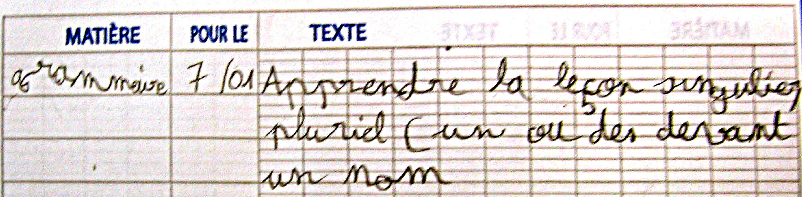 MATIÈRE POUR LE TEXTE
grammaire 7/01 Apprendre la leçon singulier
pluriel ( un ou des devant
un nom